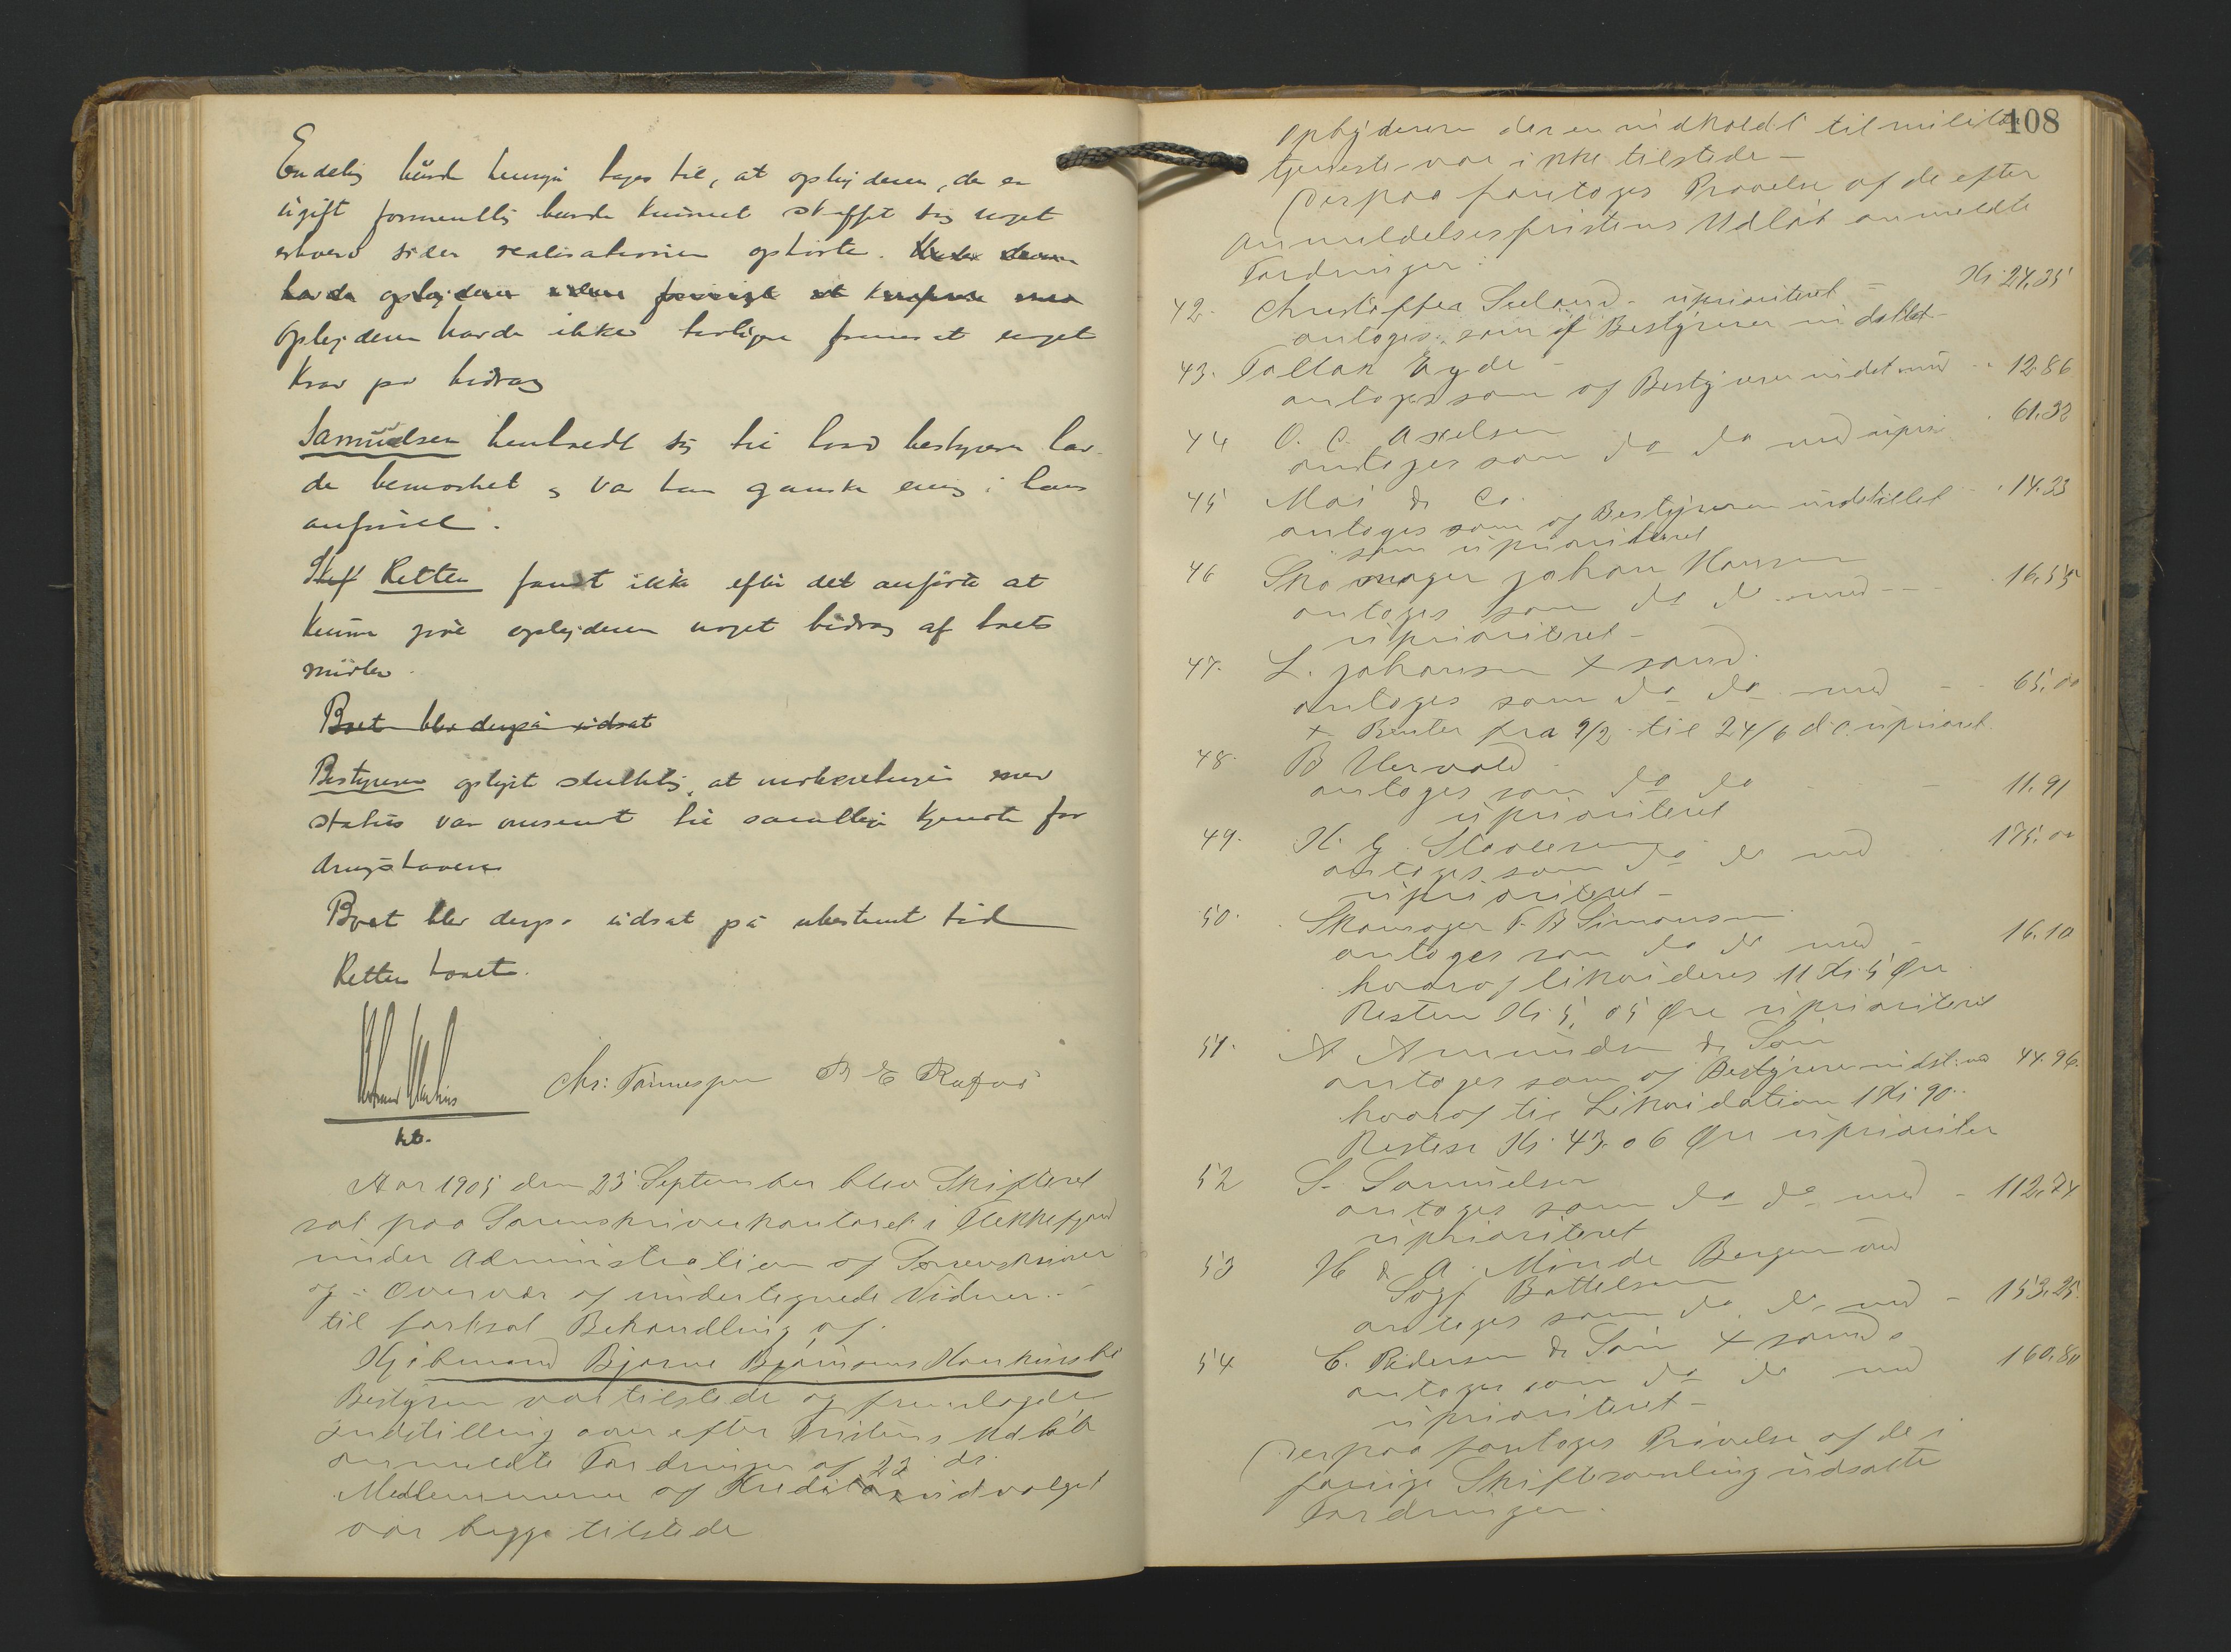 Endelig burde hensyn tages til, at opbyderen, der er
ugift formentlig burde kunnet skaffet sig noget
erhverv siden realisationen ophørte.
havde opbyderen
Opbyderen havde ikke tidligere fremsat noget
krav på bidrag
Samuelsen henholdt sig til hvad bestyreren hav-
de bemærket og var han ganske enig i hans
anførsel.
Skif Retten fandt ikke efter det anførte at
kunne give opbyderen noget bidrag af boets
midler.
Boet blev derpå udsat
Bestyreren oplyste sluttelig, at indberetningen med
status var omsendt til samtlige kjendte for
dringshavere
Boet blev derpå udsat på ubestemt tid
Retten hævet.
Chr: Tønnessen B E Rafos
kst.
Aar 1905 den 25 September blev Skifteret
sat paa Sorenskriverkontoret i Flekkefjord
under Administration af Sorenskriver
og i Overvær af undertegnede Vidner
til fortsat Behandling af
Kjøbmand Bjarne Bjørnsens Konkursbo
Bestyreren var tilstede og fremlagde
Indstilling over efter Fristens Udløb
anmeldte Fordringer af 22 ds.
Medlemmerne af Kreditorudvalget
var begge tilstede
108
opbyderen der er indkaldt til militær
tjeneste var ikke tilstede –
Derpaa foretoges Prøvelse af de efter
Anmeldelsesfristens Udløb anmeldte
Fordringer:
42. Christoffer Seland – uprioriteret – Kr 24,35
antoges som af Bestyreren indstillet –
43. Tallak Eyde –
antoges som af Bestyreren indst. med – 12.86
44 O. C. Axelsen
antoges som do do med uprior 61.32
45 Moi & Co.
antoges som af Bestyreren indstillet – 14.33
som uprioriteret
46 Skomager Johan Hansen
antoges som do do med – 16,55
uprioriteret –
47. L. Johansen + sand.
antoges som do do med – 65,00
+ Renter fra 9/2 til 24/6 d. a. upriorit.
48. B Uervold
antoges som do do – 11.91
uprioriteret
49. K. G. Stolesen
antoges som do do med 175.00
uprioriteret –
50. Skomager T. B Simonsen
antoges som do do med – 16.10
hvoraf likvideres 11 Kr 5 Øre
Resten Kr 5,05 Øre uprioriteret
51. A Amundsen & Søn
antoges som af Bestyreren indst. med 44.96.
hvoraf til Likvidation 1 Kr 90..
Resten Kr. 43.06 Øre uprioriter
52 S. Samuelsen
antoges som do do med – 112,74
uprioriteret
53 H & A. Minde Bergen ved
Sagf Bottelsen
antoges som do do med – 153.25.
54 C. Pedersen & Søn + sand.
antoges som do do med 160.80
uprioriteret –
Derpaa foretoges Prøvelse af de i
forrige Skiftesamling udsatte
Fordringer.